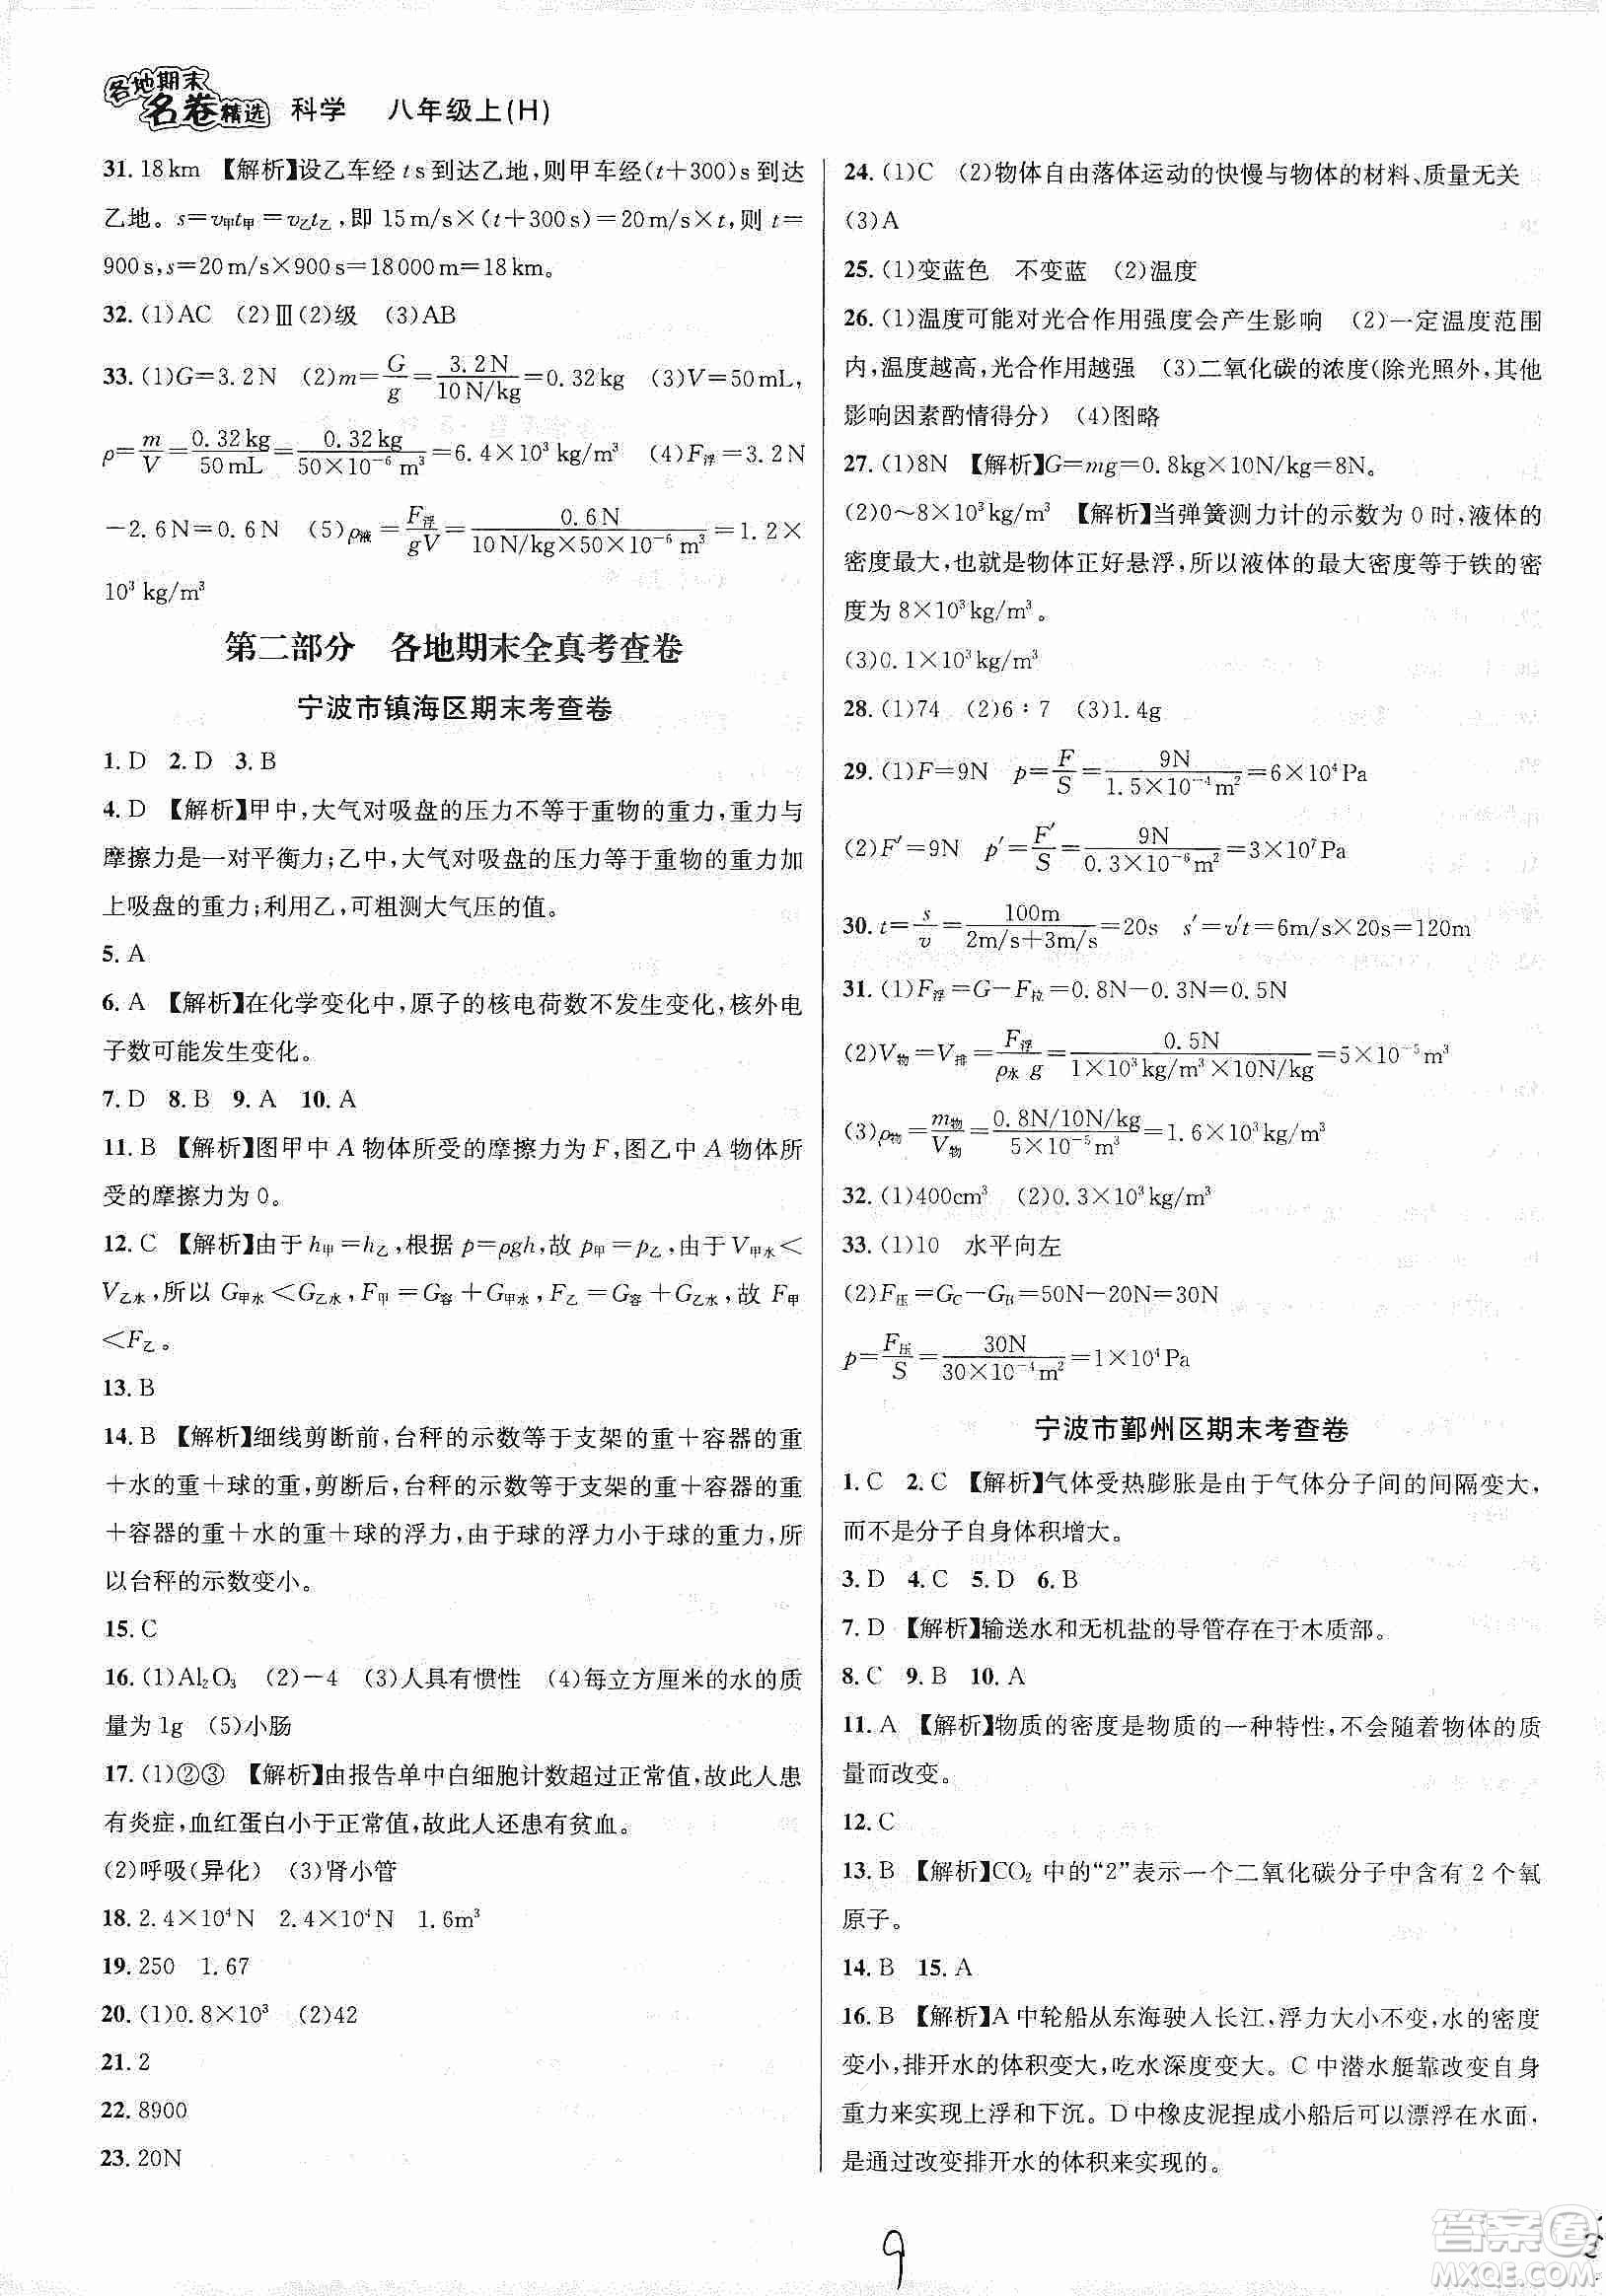 各地期末
名卷精选 科学 八年级上(H)
31. 18km 【解析】设乙车经 t s到达乙地,则甲车经(t+300)s到达
乙地。s=v甲t甲=v乙t乙,即 15m/s×(t+300s)=20m/s×t,则 t=
900s,s=20m/s×900s=18000m=18km。
32. (1)AC (2)Ⅲ(2)级 (3)AB
33. (1)G=3.2N (2)m=G/g=3.2N/10N/kg=0.32kg (3)V=50mL,
ρ=m/V=0.32kg/50mL=0.32kg/50×10⁻⁶m³=6.4×10³kg/m³ (4)F浮=3.2N
-2.6N=0.6N (5)ρ液=F浮/gV=0.6N/10N/kg×50×10⁻⁶m³=1.2×
10³kg/m³
第二部分 各地期末全真考查卷
宁波市镇海区期末考查卷
1. D 2. D 3. B
4. D 【解析】甲中,大气对吸盘的压力不等于重物的重力,重力与
摩擦力是一对平衡力;乙中,大气对吸盘的压力等于重物的重力加
上吸盘的重力;利用乙,可粗测大气压的值。
5. A
6. A 【解析】在化学变化中,原子的核电荷数不发生变化,核外电
子数可能发生变化。
7. D 8. B 9. A 10. A
11. B 【解析】图甲中 A 物体所受的摩擦力为 F,图乙中 A 物体所
受的摩擦力为 0。
12. C 【解析】由于 h甲=h乙,根据 p=ρgh,故 p甲=p乙,由于 V甲水<
V乙水,所以 G甲水<G乙水,F甲=G容+G甲水,F乙=G容+G乙水,故 F甲
<F乙。
13. B
14. B 【解析】细线剪断前,台秤的示数等于支架的重+容器的重
+水的重+球的重,剪断后,台秤的示数等于支架的重+容器的重
+容器的重+水的重+球的浮力,由于球的浮力小于球的重力,所
以台秤的示数变小。
15. C
16. (1)Al₂O₃ (2)-4 (3)人具有惯性 (4)每立方厘米的水的质
量为 1g (5)小肠
17. (1)②③ 【解析】由报告单中白细胞计数超过正常值,故此人患
有炎症,血红蛋白小于正常值,故此人还患有贫血。
(2)呼吸(异化) (3)肾小管
18. 2.4×10⁴N 2.4×10⁴N 1.6m³
19. 250 1.67
20. (1)0.8×10³ (2)42
21. 2
22. 8900
23. 20N
24. (1)C (2)物体自由落体运动的快慢与物体的材料、质量无关
(3)A
25. (1)变蓝色 不变蓝 (2)温度
26. (1)温度可能对光合作用强度会产生影响 (2)一定温度范围
内,温度越高,光合作用越强 (3)二氧化碳的浓度(除光照外,其他
影响因素酌情得分) (4)图略
27. (1)8N 【解析】G=mg=0.8kg×10N/kg=8N。
(2)0~8×10³kg/m³ 【解析】当弹簧测力计的示数为 0 时,液体的
密度最大,也就是物体正好悬浮,所以液体的最大密度等于铁的密
度为 8×10³kg/m³。
(3)0.1×10³kg/m³
28. (1)74 (2)6∶7 (3)1.4g
29. (1)F=9N p=F/S=9N/1.5×10⁻⁴m²=6×10⁴Pa
(2)F′=9N p′=F′/S=9N/0.3×10⁻⁶m²=3×10⁷Pa
30. t=s/v=100m/2m/s+3m/s=20s s′=v′t=6m/s×20s=120m
31. (1)F浮=G-F拉=0.8N-0.3N=0.5N
(2)V物=V排=F浮/ρ水g=0.5N/1×10³kg/m³×10N/kg=5×10⁻⁵m³
(3)ρ物=m物/V物=0.8N/10N/kg/5×10⁻⁵m³=1.6×10³kg/m³
32. (1)400cm³ (2)0.3×10³kg/m³
33. (1)10 水平向左
(2)F压=G_C-G_B=50N-20N=30N
p=F压/S=30N/30×10⁻⁴m²=1×10⁴Pa
宁波市鄞州区期末考查卷
1. C 2. C 【解析】气体受热膨胀是由于气体分子间的间隔变大,
而不是分子自身体积增大。
3. D 4. C 5. D 6. B
7. D 【解析】输送水和无机盐的导管存在于木质部。
8. C 9. B 10. A
11. A 【解析】物质的密度是物质的一种特性,不会随着物体的质
量而改变。
12. C
13. B 【解析】CO₂ 中的“2”表示一个二氧化碳分子中含有 2 个氧
原子。
14. B 15. A
16. B 【解析】A 中轮船从东海驶人长江,浮力大小不变,水的密度
变小,排开水的体积变大,吃水深度变大。C 中潜水艇靠改变自身
重力来实现上浮和下沉。D 中橡皮泥捏成小船后可以漂浮在水面,
是通过改变排开水的体积来实现的。
9
答案圈
MXQE.COM